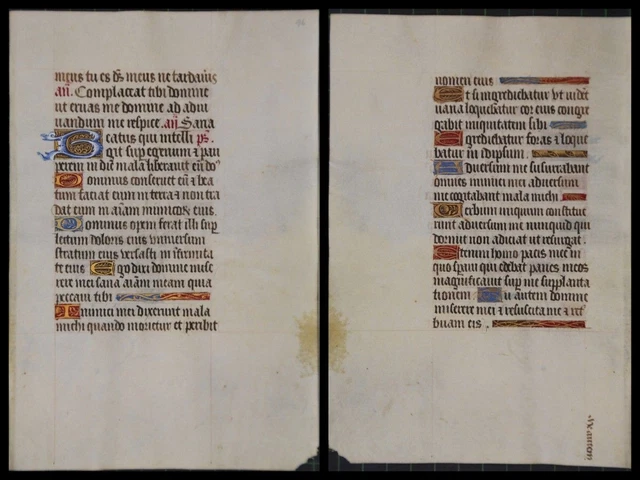 meus tu es ds meus ne tardavis
añ. Complaceat tibi domine
ut eruas me domine ad adiu
uandum me respice. añ. Sana
eatus qui intelli ps.
git sup egenum ⁊ pau
perem in die mala liberauit eũ dõs
ominus conseruet eũ ⁊ bea
tum faciat eum in terra ⁊ non tra
dat eum in aiam inimicoꝝ eius.
ominus opem ferat illi sup
lectum doloris eius uniuersum
stratum eius versasti in infirmita
te eius Ego dixi domine mise
rere mei sana aiam meam quia
peccaui tibi
nimici mei dixerunt mala
michi quando morietur et peribit
nomen eius
Et si ingrediebatur vt uidet
uana loquebatur cor eius congre
gabit iniquitatem sibi
grediebatur foras ⁊ loque
batur in idipsum.
Aduersum me susurrabant
omnes inimici mei aduersum
me cogitabant mala michi
erbum iniquum constitue
runt aduersum me nunquid qui
dormit non adiciat ut resurgat.
Etenim homo pacis mee in
quo speraui qui edebat panes meos
magnificauit sup me supplanta
tionem Tu autem domine
miserere mei ⁊ resuscita me ⁊ ret
buam eis.